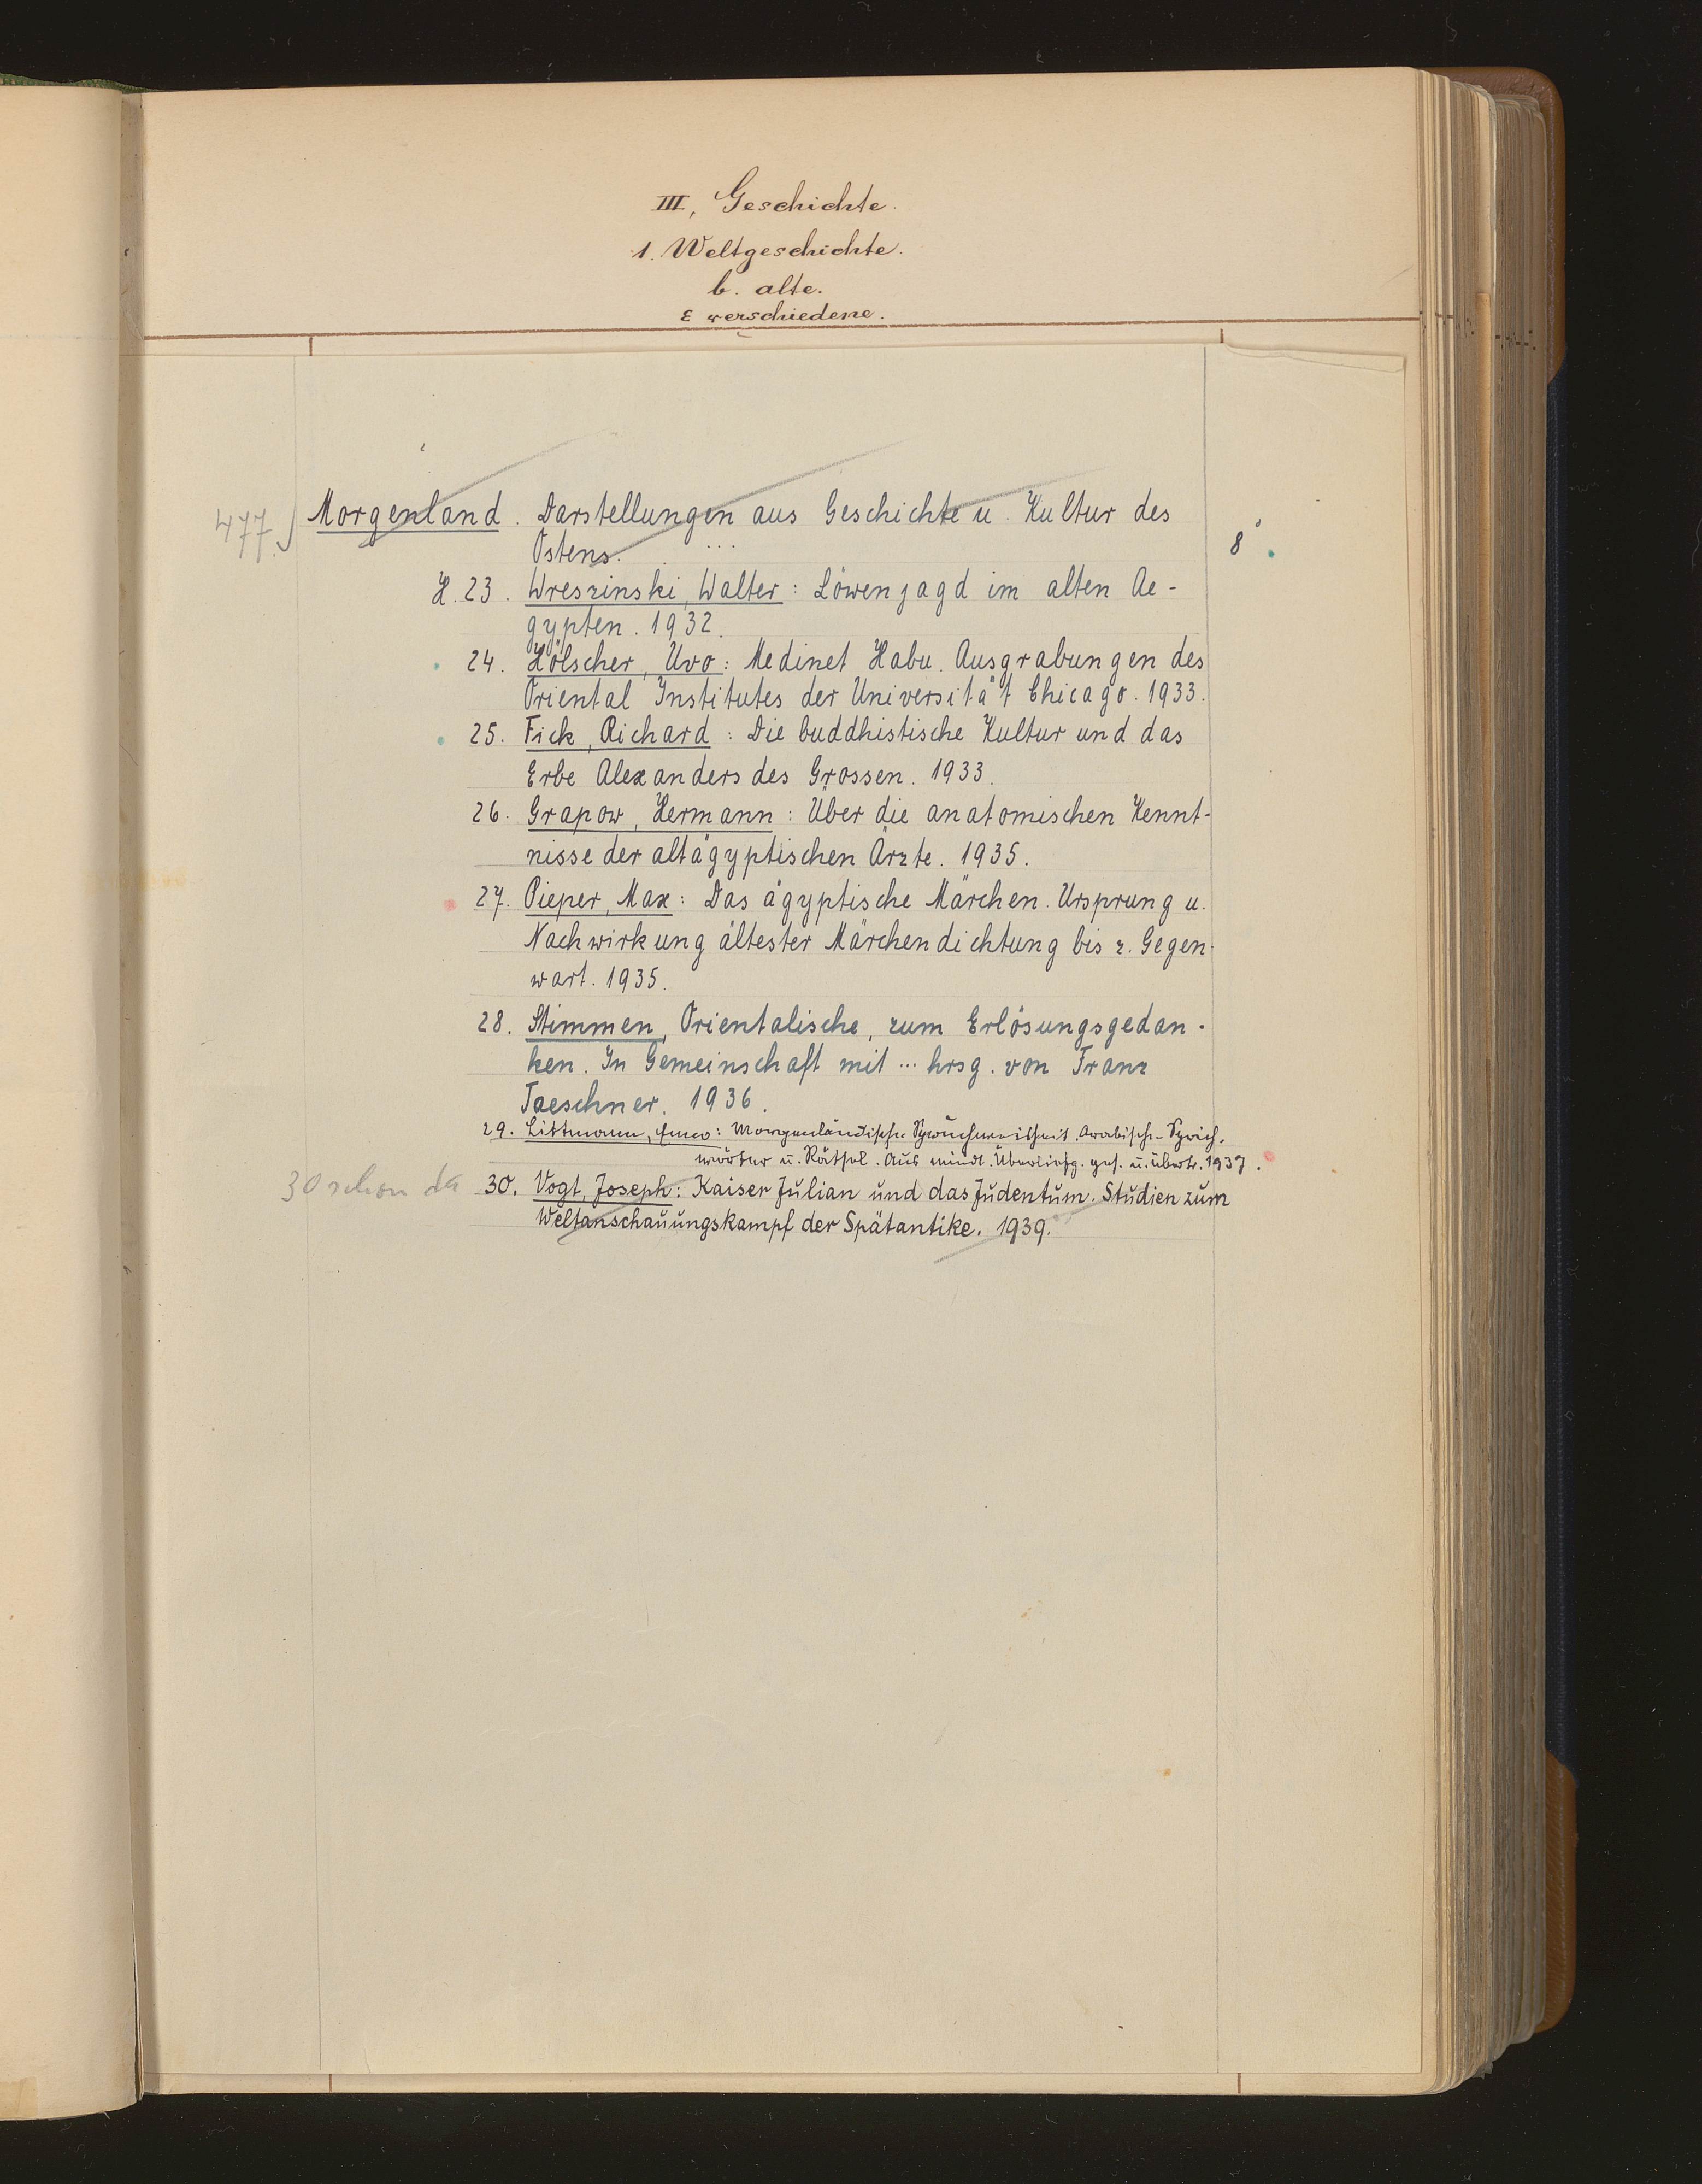 III, Geschichte.
1. Weltgeschichte.
b. alte.
ε verschiedene.
477.) Morgenland. Darstellungen aus Geschichte u. Kultur des
Ostens. ... 8°.
H. 23. Wreszinski, Walter: Löwenjagd im alten Ae-
gypten. 1932.
24. Hölscher, Uvo: Medinet Habu. Ausgrabungen des
Oriental Institutes der Universität Chicago. 1933.
25. Fick, Richard: Die buddhistische Kultur und das
Erbe Alexanders des Grossen. 1933.
26. Grapow, Hermann: Über die anatomischen Kennt-
nisse der altägyptischen Ärzte. 1935.
27. Pieper, Max: Das ägyptische Märchen. Ursprung u.
Nachwirkung ältester Märchendichtung bis z. Gegen-
wart. 1935.
28. Stimmen, Orientalische, zum Erlösungsgedan-
ken. In Gemeinschaft mit ... hrsg. von Franz
Taeschner. 1936.
29. Littmann, Enno: Morgenländische Spruchweisheit. Arabische Sprich-
wörter u. Rätsel. Aus mündl. Überliefg. ges. u. übertr. 1937.
30 schon da 30. Vogt, Joseph: Kaiser Julian und das Judentum. Studien zum
Weltanschauungskampf der Spätantike. 1939.